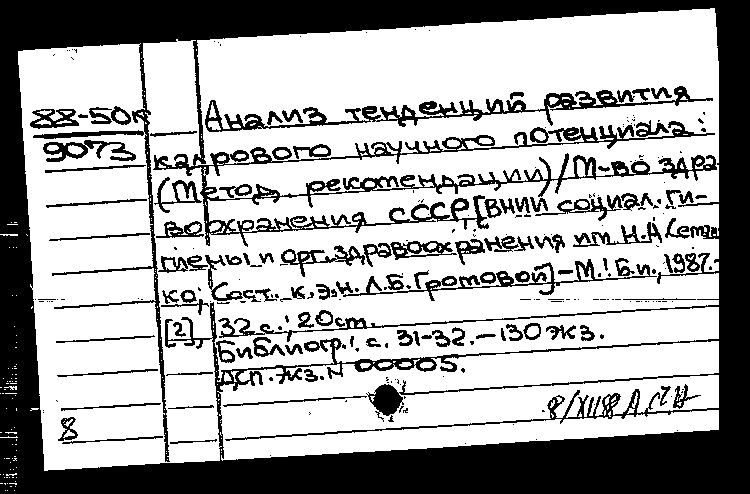 88-50к
9073
Анализ тенденций развития
кадрового научного потенциала:
(Метод. рекомендации)/М-во здра-
воохранения СССР, [ВНИИ социал. ги-
гиены и орг. здравоохранения им. Н.А. Семаш-
ко; Сост. к.э.н. Л.Б. Громовой].-М.: Б.и., 1987.-
[2], 32 с.; 20 см.
Библиогр.: с. 31-32. - 130 экз.
ДСП. Экз. N 00005.
8
8/XII88